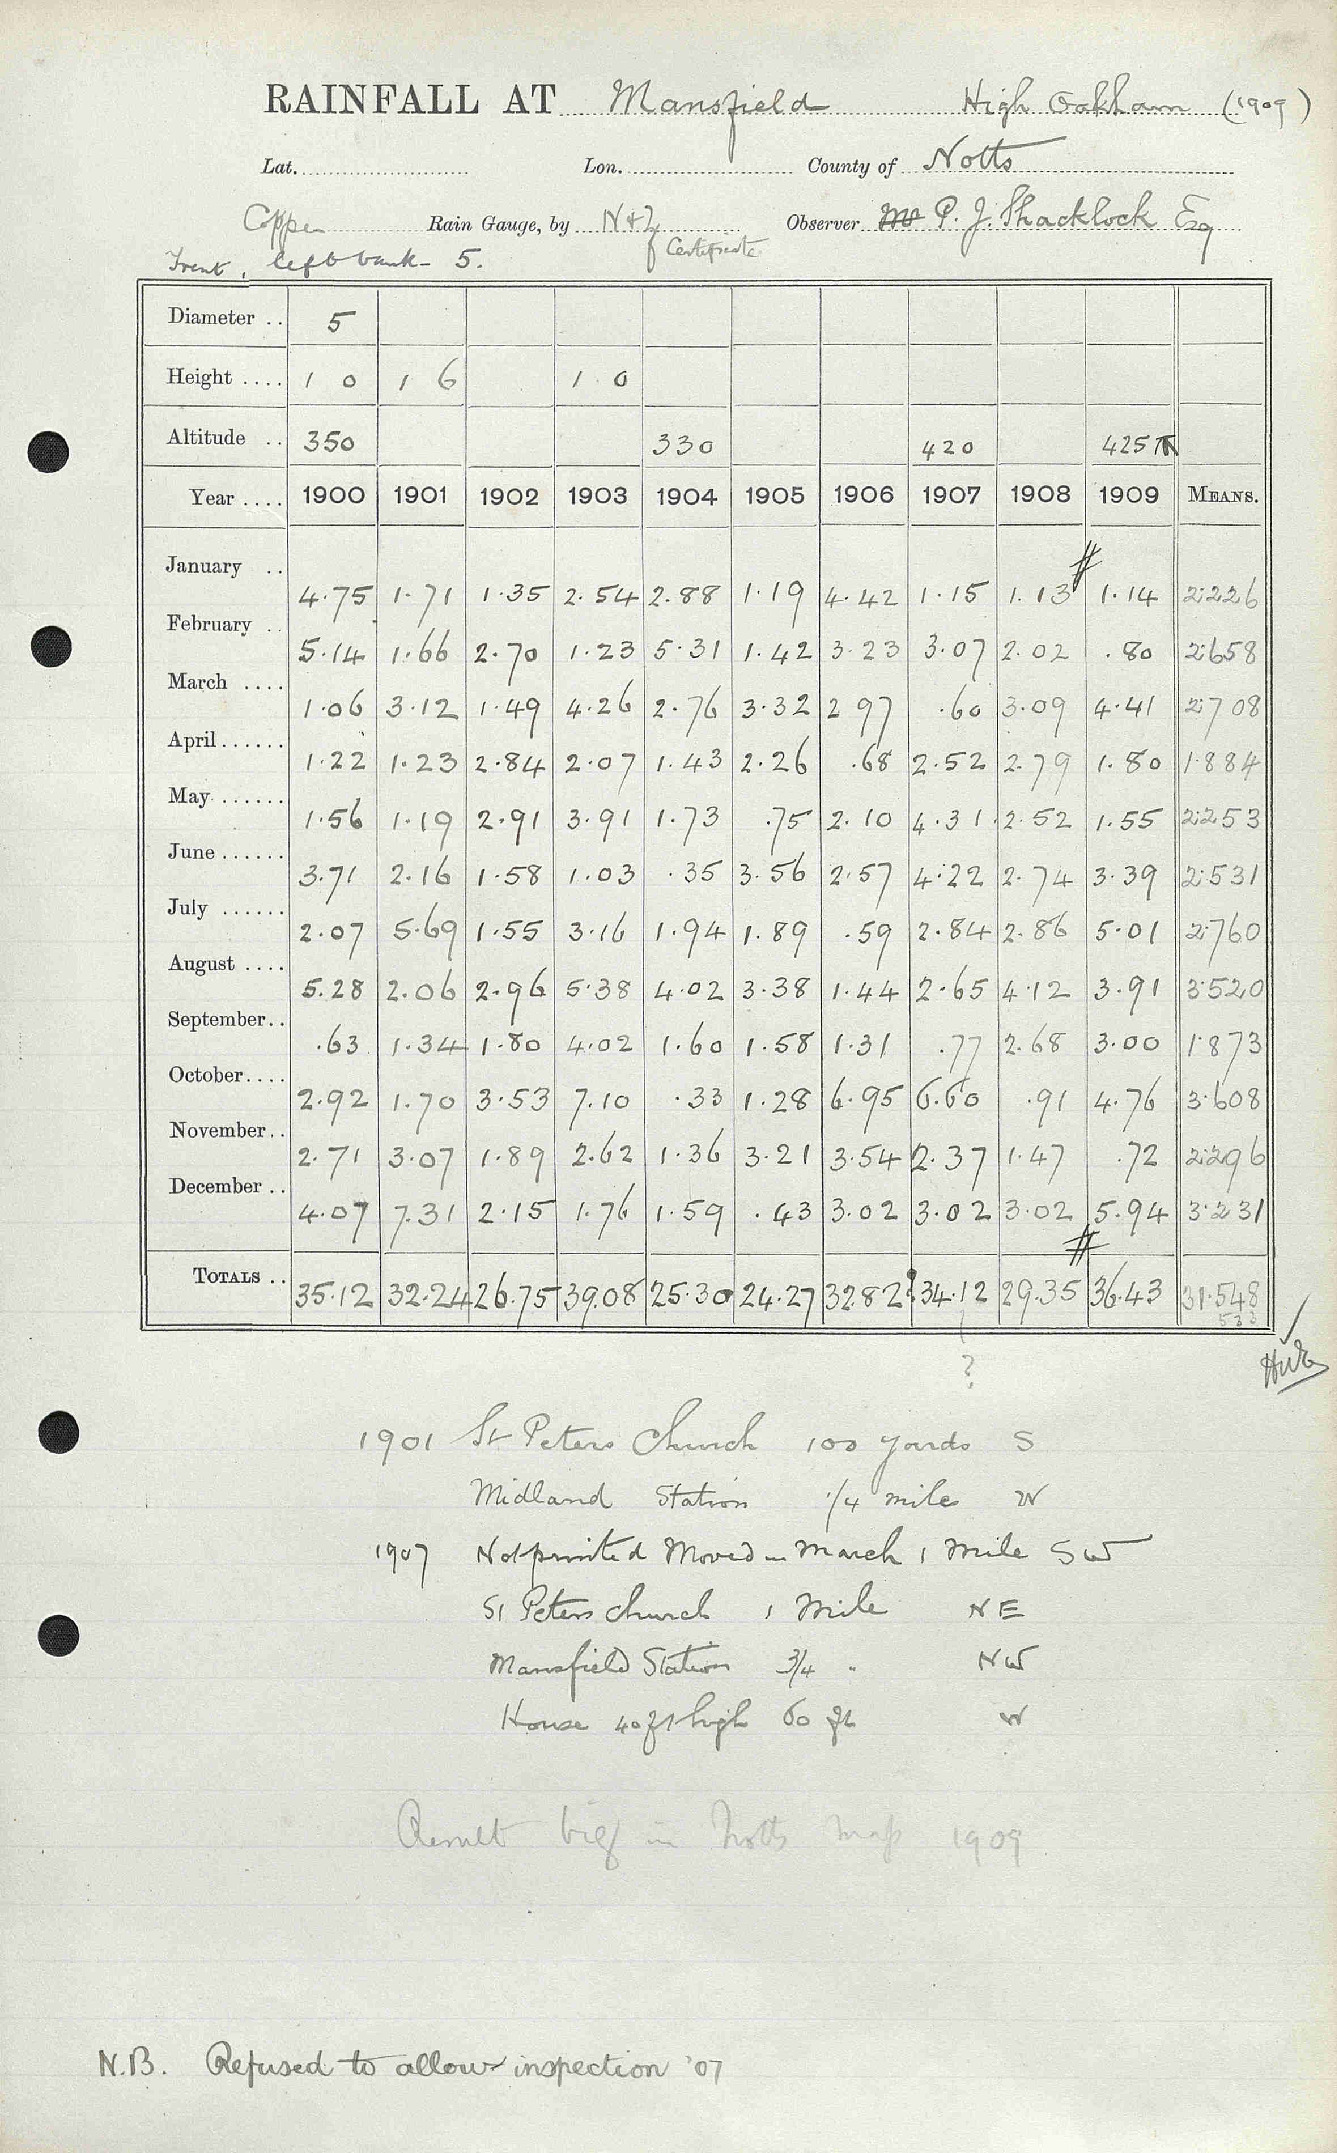 RAINFALL AT Mansfield High Oakham (1909)
Lat. Lon. County of Notts
Copper Rain Gauge, by N & Z Observer Mr P. J. Shacklock Esq
Certificate
Trent, left bank - 5.
Diameter .. 5
Height .... 1 0 1 6 1 0
Altitude .. 350 330 420 425
Year .... 1900 1901 1902 1903 1904 1905 1906 1907 1908 1909 MEANS.
January .. 4.75 1.71 1.35 2.54 2.88 1.19 4.42 1.15 1.13 1.14 2.226
February .. 5.14 1.66 2.70 1.23 5.31 1.42 3.23 3.07 2.02 .80 2.658
March .... 1.06 3.12 1.49 4.26 2.76 3.32 2 97 .60 3.09 4.41 2.708
April ...... 1.22 1.23 2.84 2.07 1.43 2.26 .68 2.52 2.79 1.80 1.884
May ...... 1.56 1.19 2.91 3.91 1.73 .75 2.10 4.31 2.52 1.55 2.253
June ...... 3.71 2.16 1.58 1.03 .35 3.56 2.57 4.22 2.74 3.39 2.531
July ...... 2.07 5.69 1.55 3.16 1.94 1.89 .59 2.84 2.86 5.01 2.760
August .... 5.28 2.06 2.96 5.38 4.02 3.38 1.44 2.65 4.12 3.91 3.520
September.. .63 1.34 1.80 4.02 1.60 1.58 1.31 .77 2.68 3.00 1.873
October.... 2.92 1.70 3.53 7.10 .33 1.28 6.95 6.60 .91 4.76 3.608
November.. 2.71 3.07 1.89 2.62 1.36 3.21 3.54 2.37 1.47 .72 2.296
December .. 4.07 7.31 2.15 1.76 1.59 .43 3.02 3.02 3.02 5.94 3.231
TOTALS .. 35.12 32.24 26.75 39.08 25.30 24.27 32.82 34.12 29.35 36.43 31.548
533
?
1901 St Peters Church 100 yards S
Midland Station 1/4 miles W
1907 Not printed Moved in March 1 Mile SW
St Peters church 1 Mile NE
Mansfield Station 3/4 " NW
House 40 ft high 60 ft W
Result big in Notts map 1909
N.B. Refused to allow inspection '07